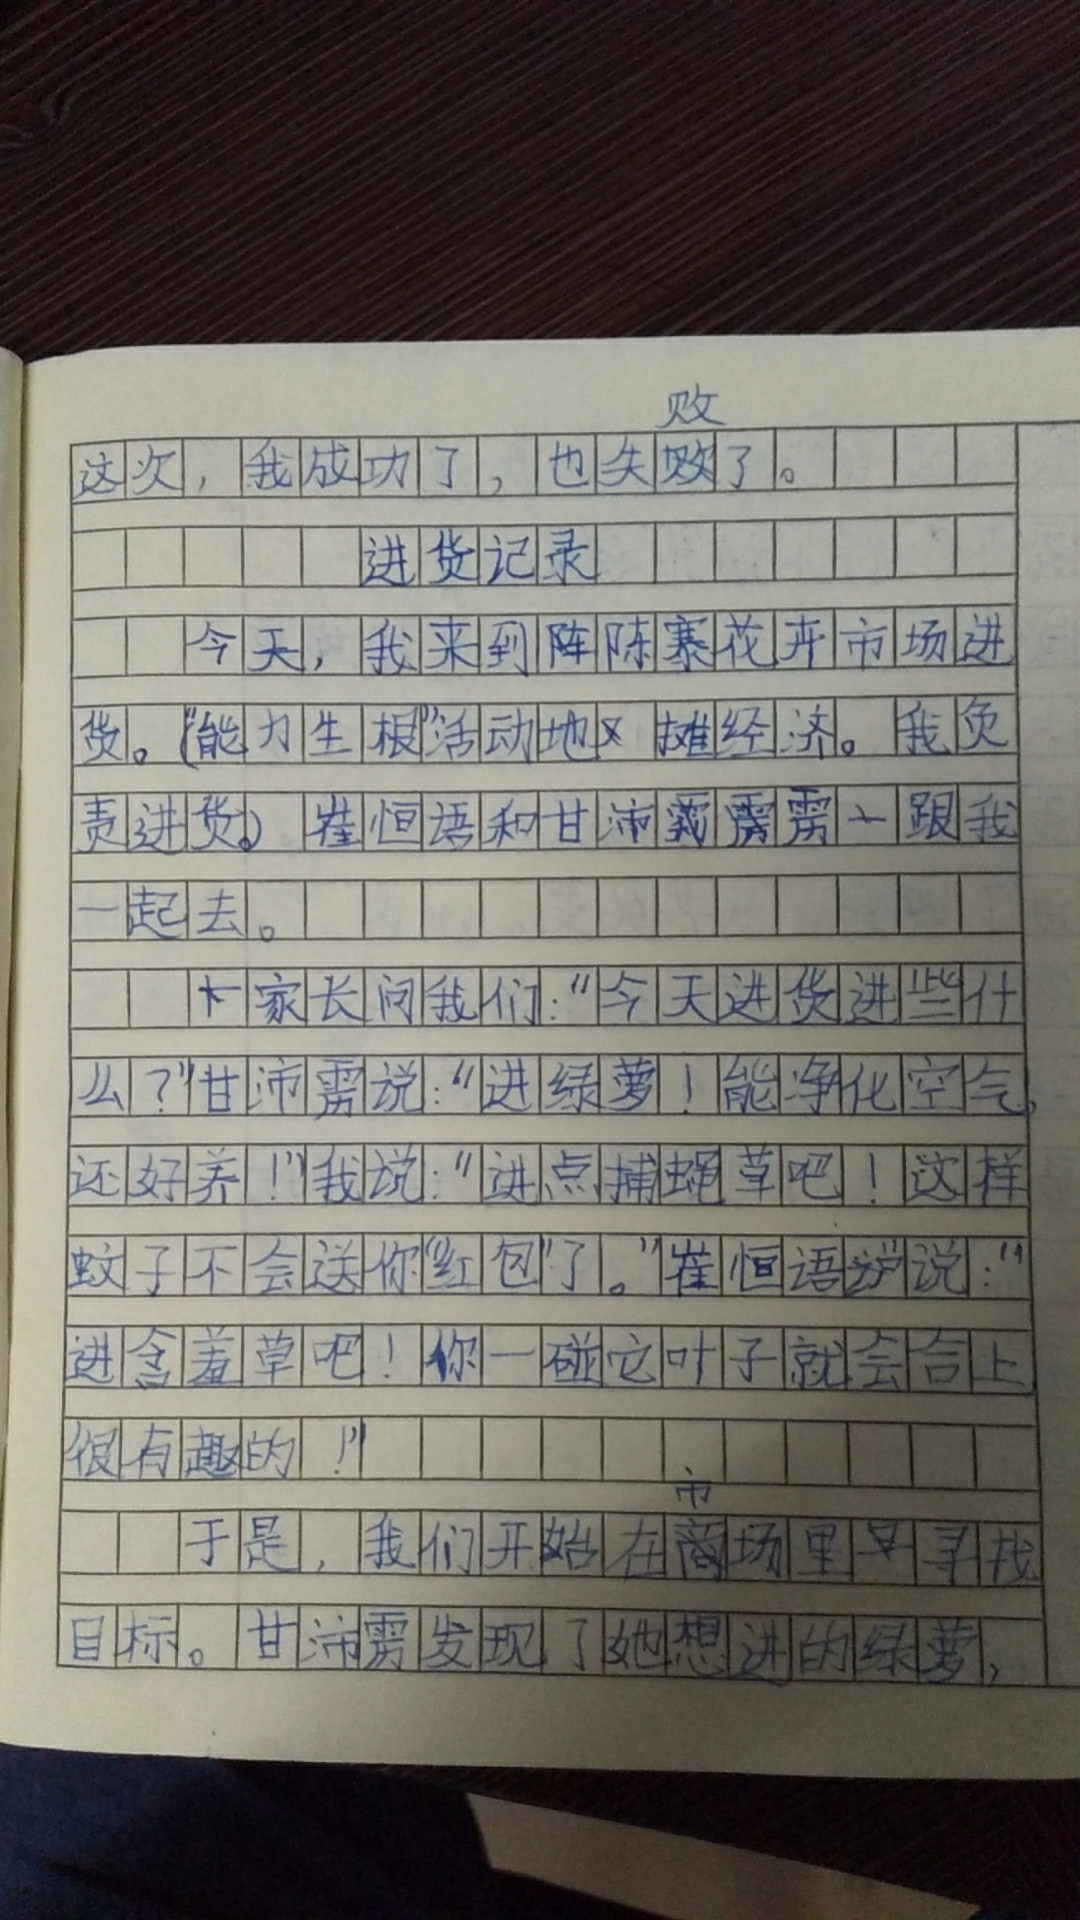 败
这次，我成功了，也失败了。
进货记录
今天，我来到陈寨花卉市场进
货。(“能力生根”活动地摊经济。我负
责进货。)崔恒语和甘沛雳跟我
一起去。
家长问我们：“今天进货进些什
么？”甘沛雳说：“进绿萝！能净化空气，
还好养！”我说：“进点捕蝇草吧！这样
蚊子不会送你“红包”了。”崔恒语说：“
进含羞草吧！你一碰它叶子就会合上
很有趣的！”
市
于是，我们开始在商场里寻找
目标。甘沛雳发现了她想进的绿萝，